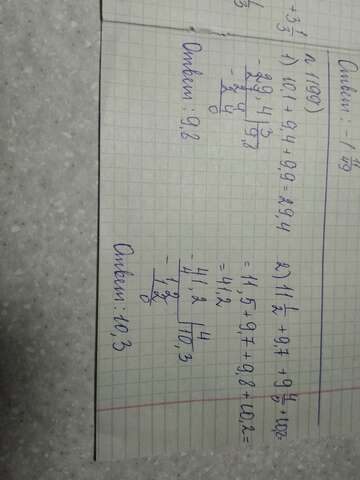 + 3 1/3
Ответ: -1
n 1199)
1) 10,1 + 9,4 + 9,9 = 29,4
- 29,4 | 3
9,8
- 24
24
0
Ответ: 9,8
2) 11 1/2 + 9,7 + 9 4/5 + 10,2
= 11,5 + 9,7 + 9,8 + 10,2 =
= 41,2
- 41,2 | 4
4 10,3
- 12
12
0
Ответ: 10,3